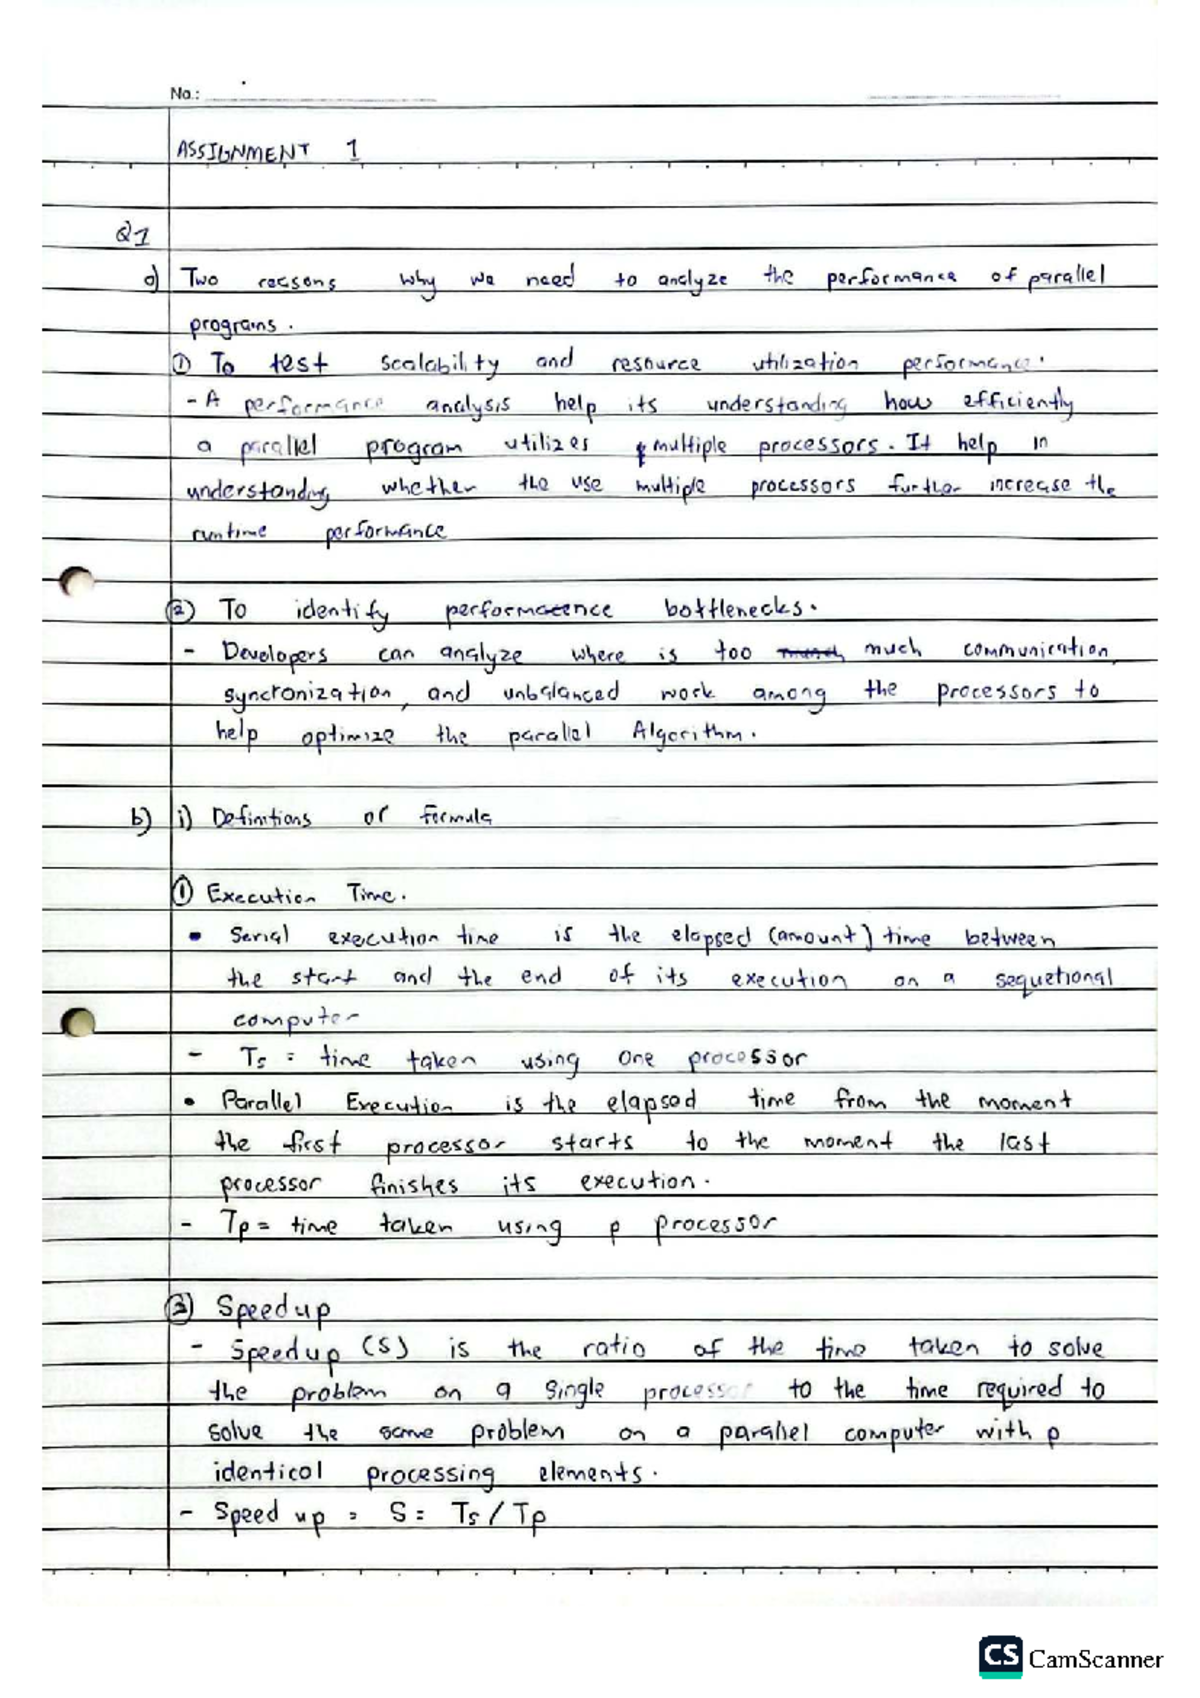 No.:
ASSIGNMENT 1
Q1
a) Two reasons why we need to analyze the performance of parallel
programs.
① To test scalability and resource utilization performance.
- A performance analysis help its understanding how efficiently
a parallel program utilizes multiple processors. It help in
understanding whether the use multiple processors further increase the
runtime performance
② To identify performacence bottlenecks.
- Developers can analyze where is too much communication,
syncronization, and unbalanced work among the processors to
help optimize the parallel Algorithm.
b) i) Definitions or formula
① Execution Time.
• Serial execution time is the elapsed (amount) time between
the start and the end of its execution on a sequetional
computer
- Ts = time taken using one processor
• Parallel Execution is the elapsed time from the moment
the first processor starts to the moment the last
processor finishes its execution.
- Tp = time taken using p processor
③ Speed up
- Speed up (S) is the ratio of the time taken to solve
the problem on a single processor to the time required to
solve the same problem on a parallel computer with p
identicol processing elements.
- Speed up = S = Ts / Tp
CS CamScanner